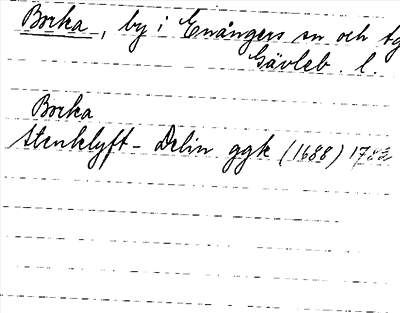 Borka, by i Enångers sn och tg
Gävleb. l.
Borka
Stenklyft - Delin ggk (1688) 1782